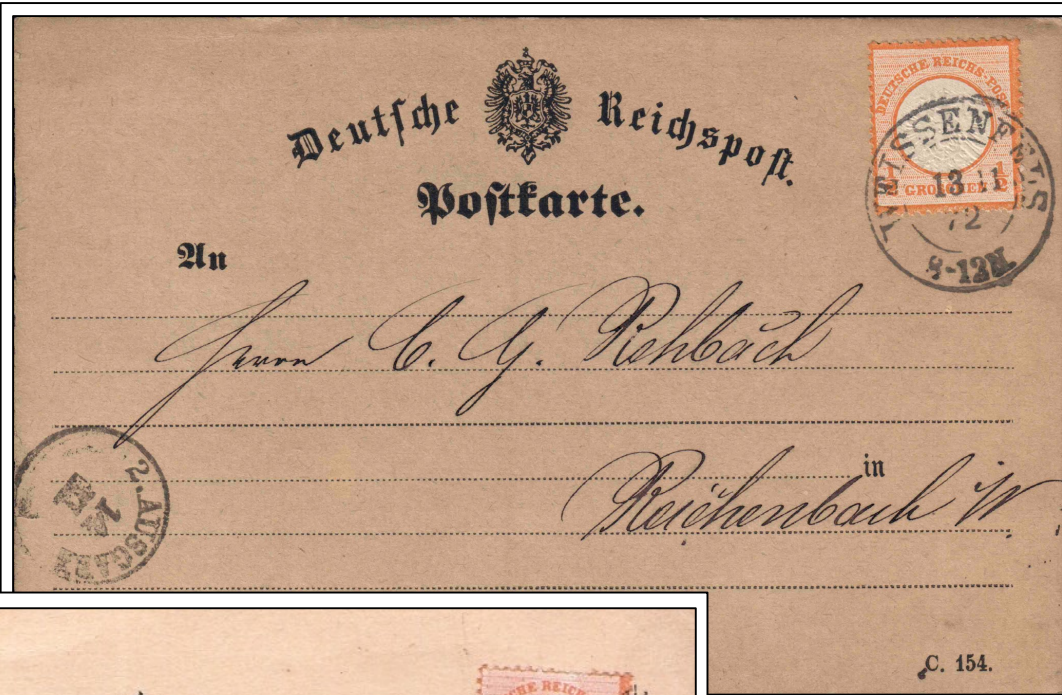 Deutsche Reichspost.
Postkarte.
DEUTSCHE REICHS-POST
½ GROSCHEN ½
WEISSENFELS
13 11
72
8-12N.
An
Herrn C. G. Rehbach
in
Reichenbach
2. AUSGABE
14
11
C. 154.